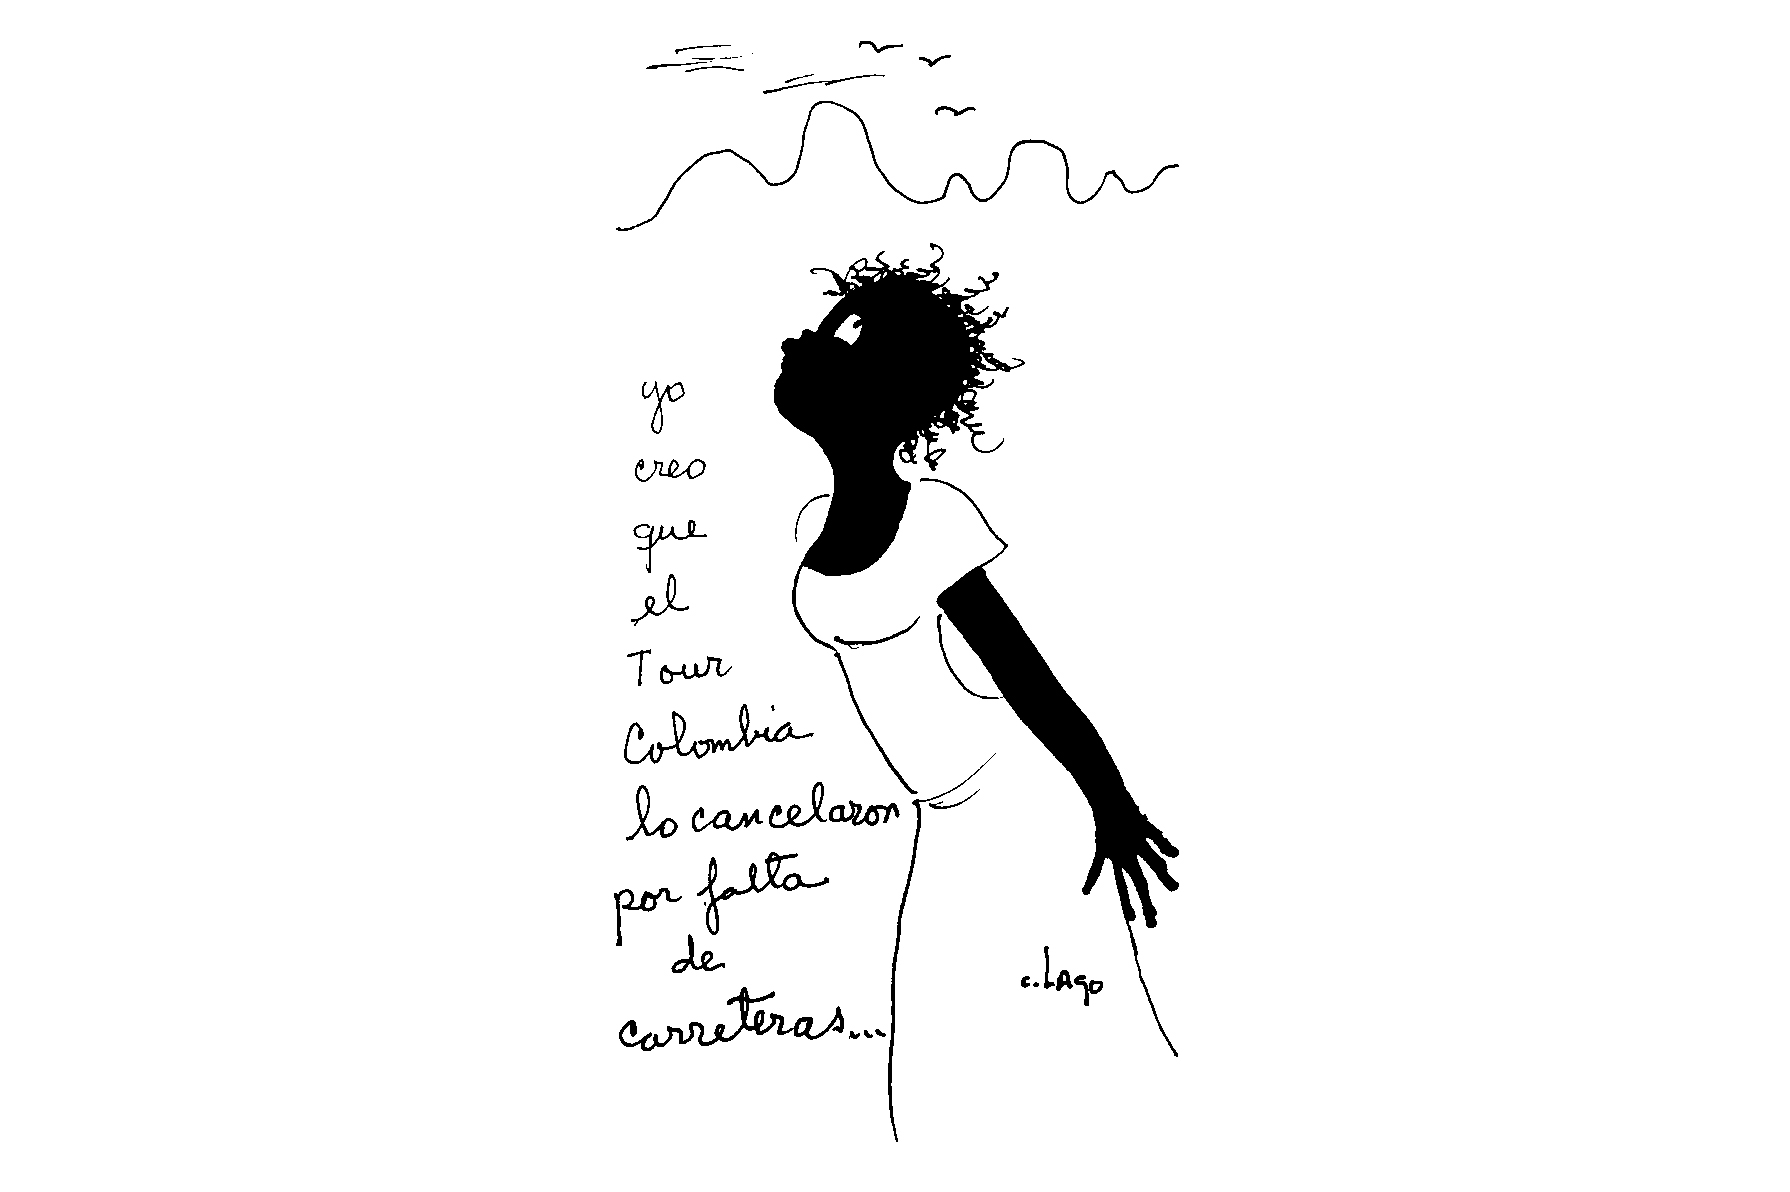 yo
creo
que
el
Tour
Colombia
lo cancelaron
por falta
de
carreteras...
c. LAgo